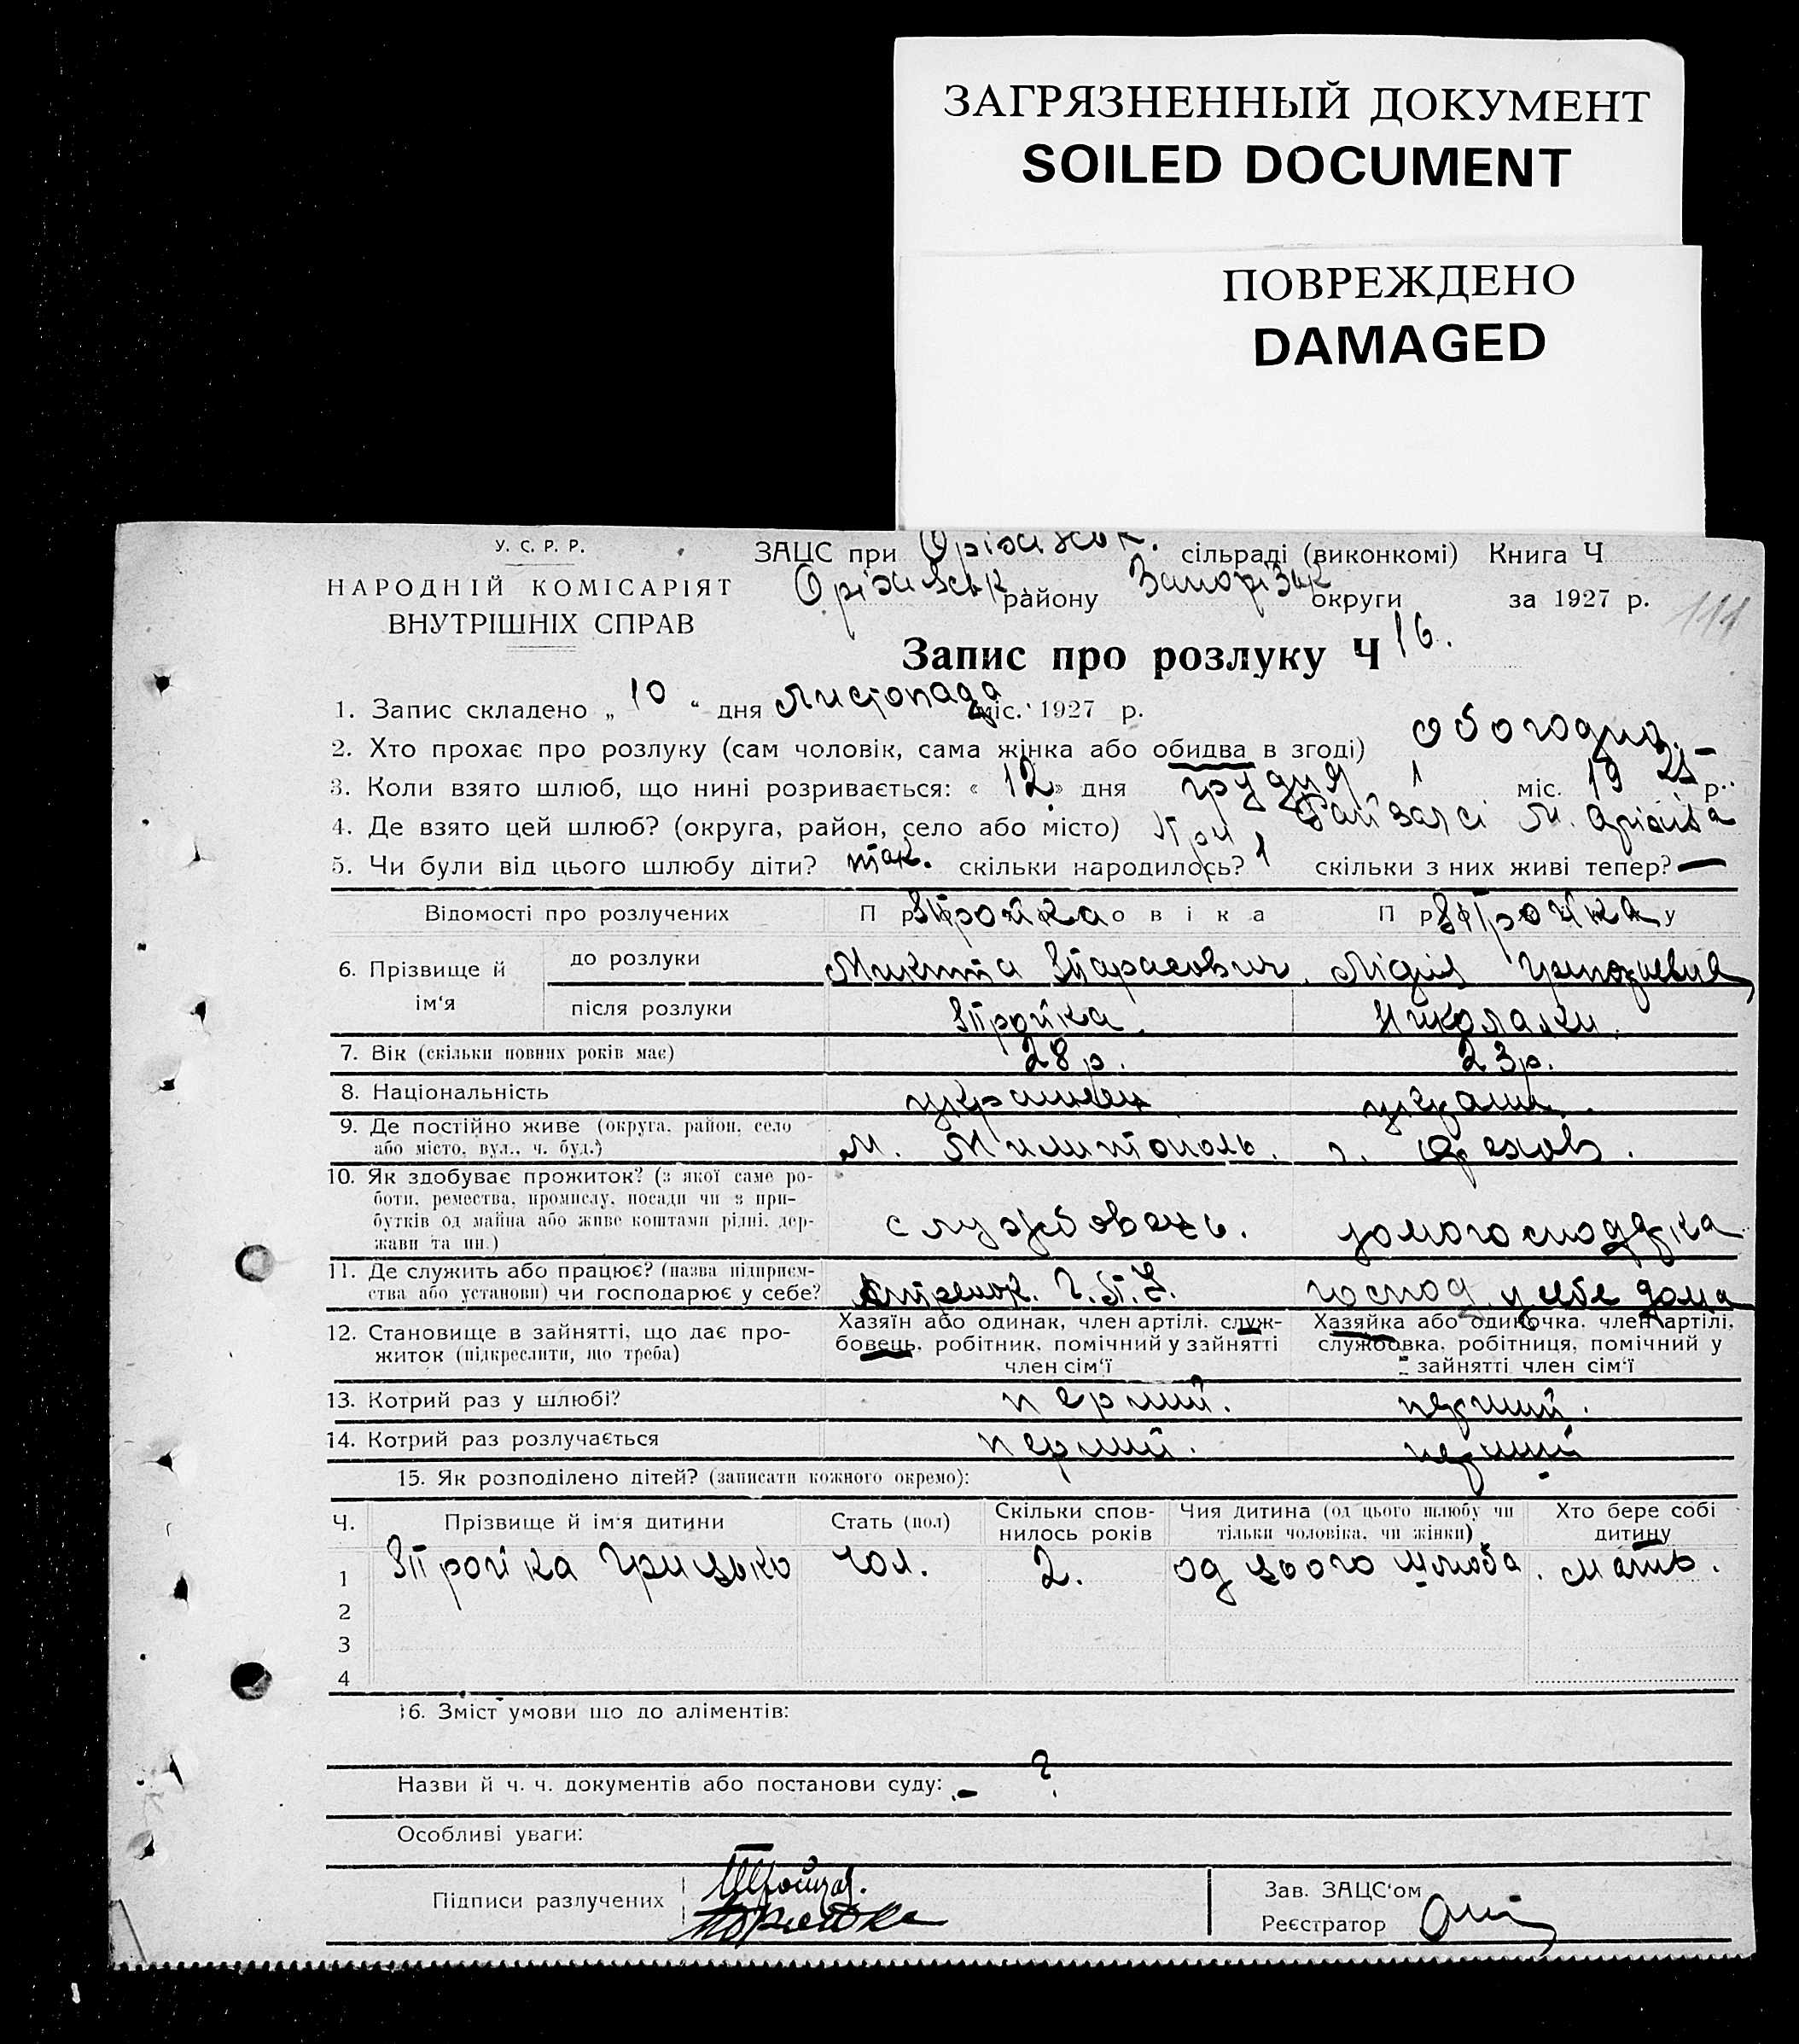 ЗАГРЯЗНЕННЫЙ ДОКУМЕНТ
SOILED DOCUMENT
ПОВРЕЖДЕНО
DAMAGED
У. С. Р. Р.
НАРОДНІЙ КОМІСАРІЯТ
ВНУТРІШНІХ СПРАВ
ЗАЦС при Оріхівськ. сільраді (виконкомі) Книга Ч
Оріхівськ району Запорізьк округи за 1927 р.
111
Запис про розлуку Ч 16.
1. Запис складено „ 10 “ дня Листопада міс. 1927 р.
2. Хто прохає про розлуку (сам чоловік, сама жінка або обидва в згоді)
3. Коли взято шлюб, що нині розривається: « 12 » дня грудня міс. 1925 р.
4. Де взято цей шлюб? (округа, район, село або місто) При Райзагсі м. Оріхіва
5. Чи були від цього шлюбу діти? так. скільки народилось? 1 скільки з них живі тепер? —
Відомості про розлучених
6. Прізвище й ім‘я
до розлуки Тройка Микита Тарасович. Тройка Лідія
після розлуки Тройка. Николаки.
7. Вік (скільки повних років має) 28 р. 23 р.
8. Національність украинец. украин.
9. Де постійно живе (округа, район, село або місто, вул., ч. буд.) м. Милитополь. г. Орехов.
10. Як здобуває прожиток? (з якої саме роботи, ремества, промислу, посади чи з прибутків од майна або живе коштами рідні, держави та ин.) службовець. домогосподарка
11. Де служить або працює? (назва підприємства або установи) чи господарює у себе? Стрелок. Г.П.У. господ. у себе дома
12. Становище в зайнятті, що дає прожиток (підкреслити, що треба)
Хазяїн або одинак, член артілі, службовець, робітник, помічний у зайнятті член сім‘ї
Хазяйка або одиночка, член артілі, службовка, робітниця, помічний у зайнятті член сім‘ї
13. Котрий раз у шлюбі? перший. перший.
14. Котрий раз розлучається перший. перший
15. Як розподілено дітей? (записати кожного окремо):
Ч. Прізвище й ім‘я дитини Стать (пол) Скільки сповнилось років Чия дитина (од цього шлюбу чи тільки чоловіка, чи жінки) Хто бере собі дитину
1 Тройка Грицько чол. 2. од цього шлюба. мать.
2
3
4
16. Зміст умови що до аліментів:
Назви й ч. ч. документів або постанови суду: - ?
Особливі уваги:
Підписи разлучених
Зав. ЗАЦС‘ом
Реєстратор